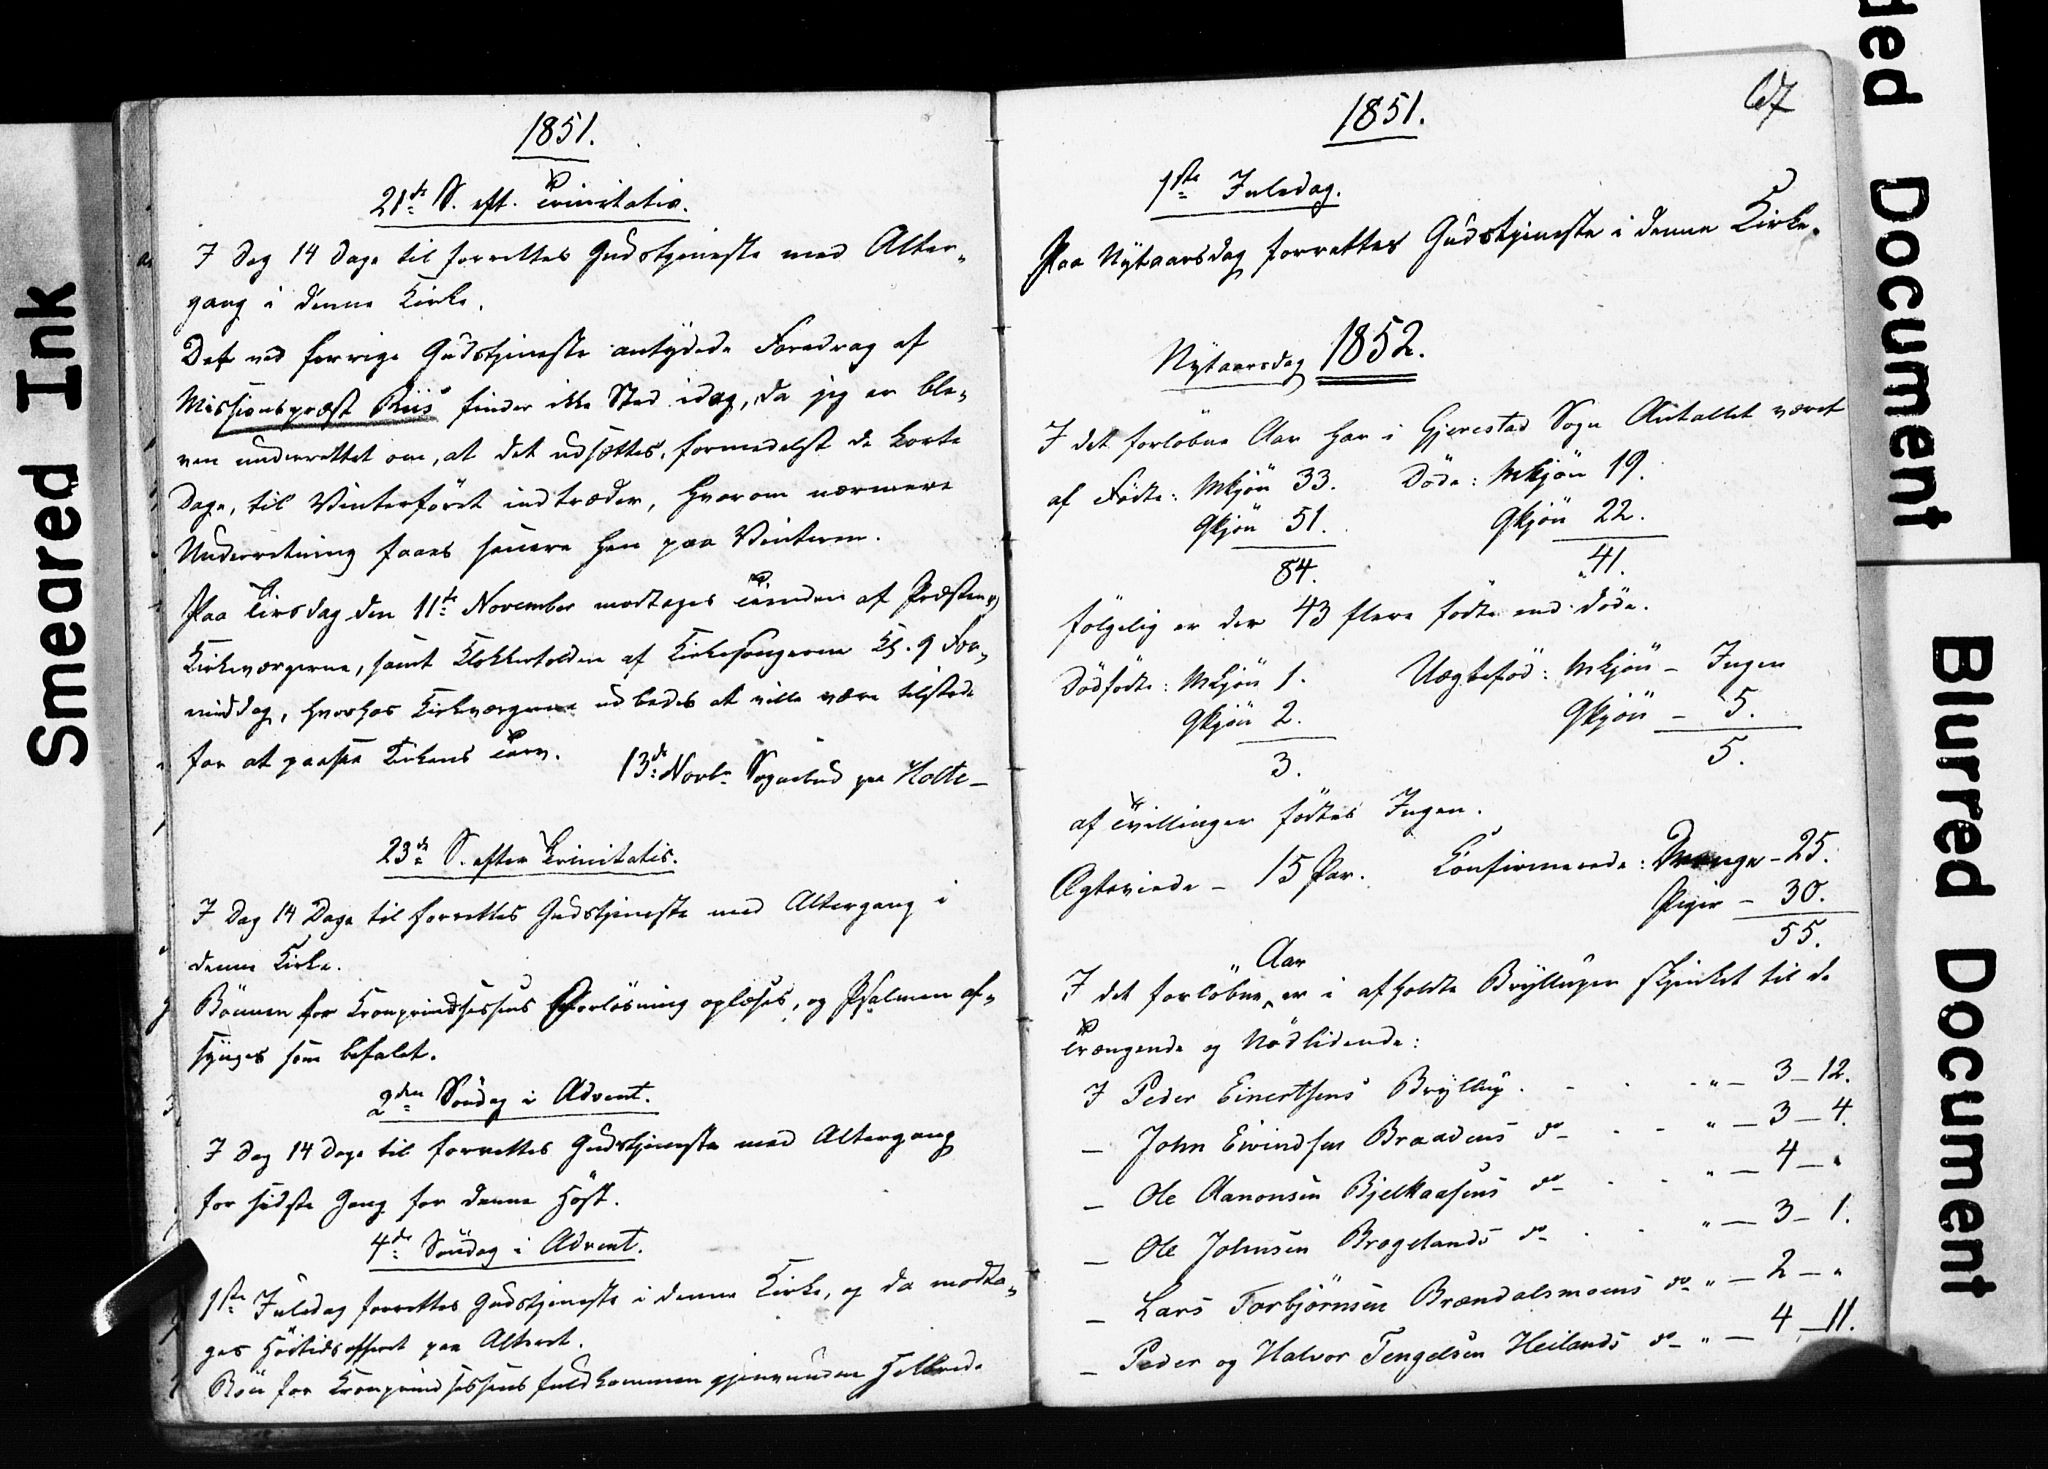 1851.
21de S. eft. Trinitatis.
I Dag 14 Dage til forrettes Gudstjeneste med Alter-
gang i denne Kirke.
Det ved forrige Gudstjeneste antydede Foredrag af
Missionspræst Riis finder ikke Sted idag, da jeg er ble-
ven underrettet om, at det udsættes, formedelst de korte
Dage, til Vinterföret indtræder, hvorom nærmere
Underretning faaes senere hen paa Vinteren.
Paa Tirsdag den 11te November modtages Tienden af Præsten,
Kirkeværgerne, samt Klokkertolden af Kirkesangerne Kl. 9 For-
middag, hvorhos Kirkeværgerne udbedes at ville være tilstede
for at paasee Kirkens Tarv.
13de Novbr Sognebud paa Holte-
23de S. efter Trinitatis.
I Dag 14 Dage til forrettes Gudstjeneste med Altergang i
denne Kirke.
Bönnen for Kronprindsessens Forlösning oplæses, og Psalmen af-
synges som befalet.
2den Söndag i Advent.
I Dag 14 Dage til forrettes Gudstjeneste med Altergang
for sidste Gang for denne Höst.
4de Söndag i Advent.
1ste Juledag forrettes Gudstjeneste i denne Kirke, og da modta-
ges Höitidsofferet paa Alteret.
Bön for Kronprindsessens fuldkommen gjenvundne Helbred
67
1851.
1ste Juledag.
Paa Nytaarsdag forrettes Gudstjeneste i denne Kirke.
Nytaarsdag 1852.
I det forløbne Aar har i Gjerestad Sogn Antallet været
af Födte: Mkjön 33. Döde: Mkjön 19.
Qkjön 51. Qkjön 22.
84. 41.
fölgelig er der 43 flere födte end döde.
Dödfödte: Mkjön 1. Uægtefød: Mkjön – Ingen
Qkjön 2. Qkjön – 5.
3. 5.
af Tvillinger födtes Ingen.
Ægteviede – 15 Par. Confirmerede: Drenge – 25.
Piger – 30.
55.
I det forlöbne Aar er i afholdte Bryllupper skjenket til de
Trængende og Nödlidende:
I Peder Einertsens Bryllup . - . - „ – 3 – 12.
– John Eivindsen Braadens do - . - „ – 3 – 4.
– Ole Aanonsen Bjelkaasens do - . - „ – 4 – „
– Ole Johnsen Brogelands do - . - „ – 3 – 1.
– Lars Torbjörnsen Brændalsmoens do „ – 2 – „
– Peder og Halvor Tengelsen Heilands do - „ – 4 – 11.
Smeared Ink
ded Document
Blurred Document